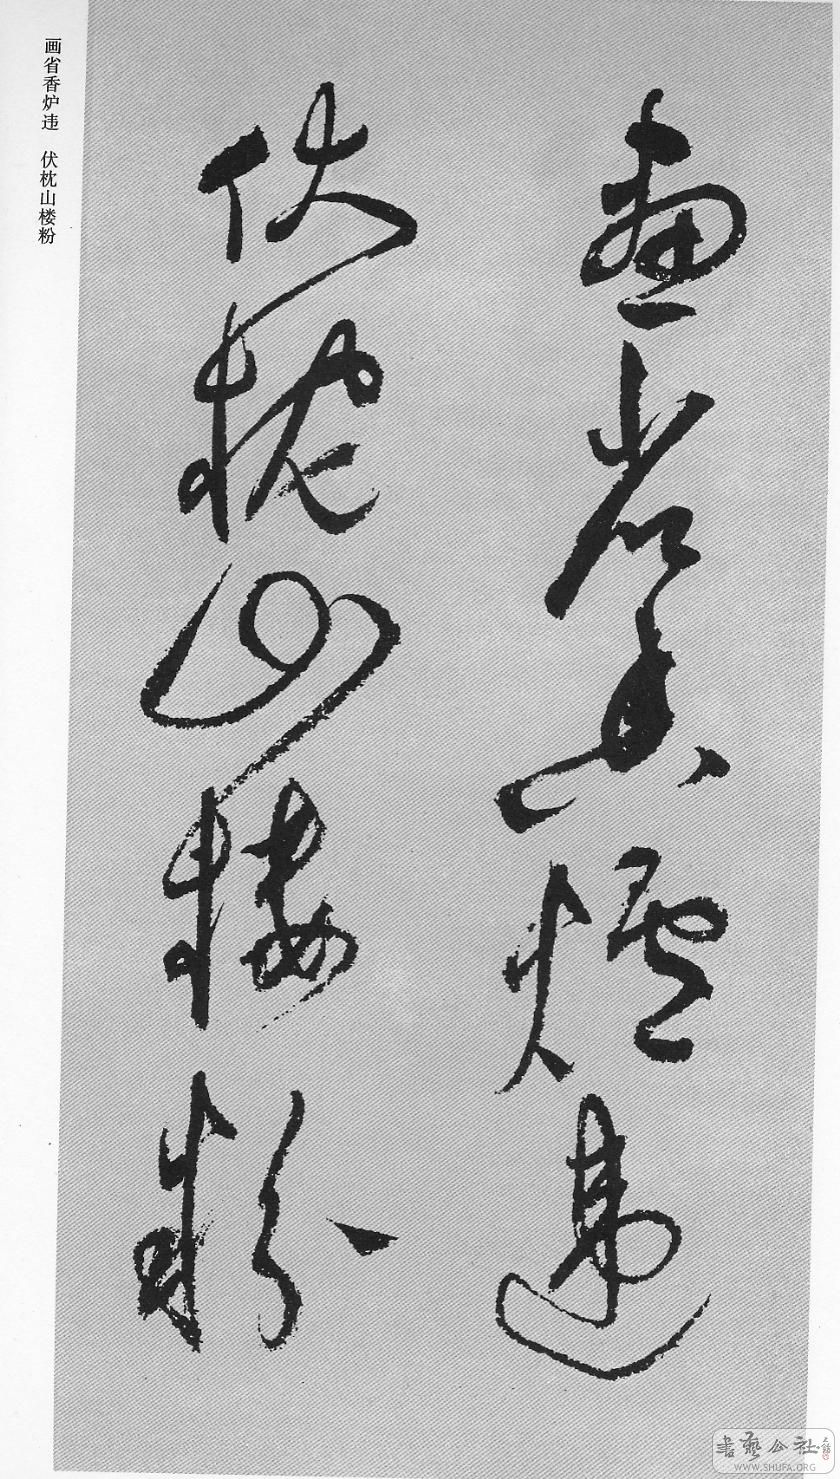 畫省香爐違
伏枕山樓粉
画省香炉违 伏枕山楼粉
書藝公社
WWW.SHUFA.ORG